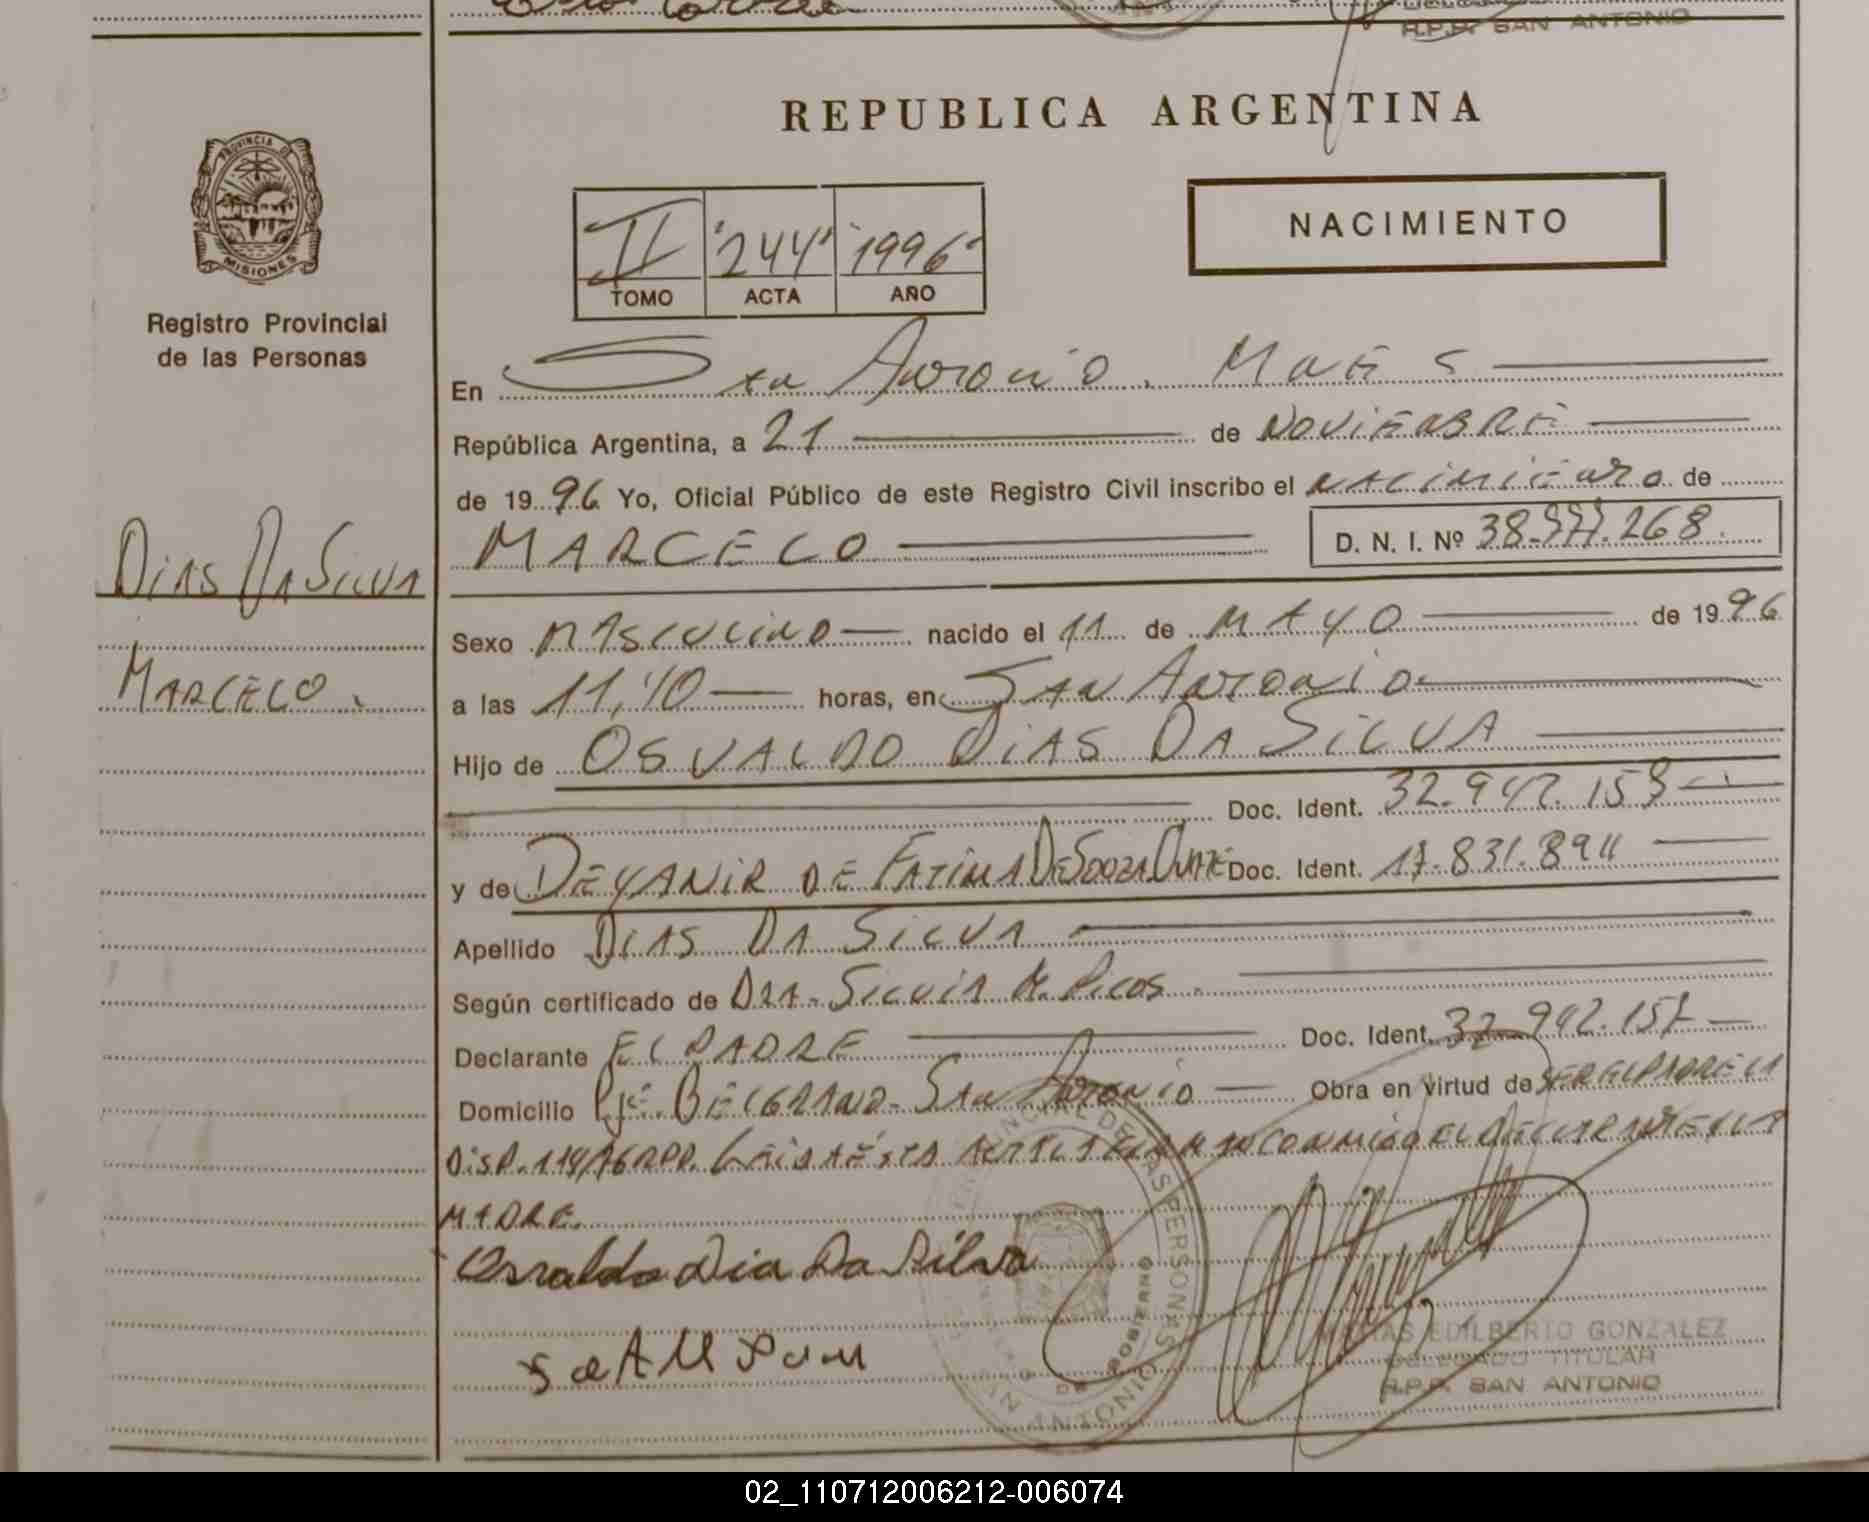 R.P.P. SAN ANTONIO
REPUBLICA ARGENTINA
PROVINCIA DE
MISIONES
Registro Provincial
de las Personas
II 244 1996
TOMO ACTA AÑO
NACIMIENTO
En San Antonio, Mnes
República Argentina, a 21 de NOVIEMBRE
de 1996 Yo, Oficial Público de este Registro Civil inscribo el nacimiento de
MARCELO D. N. I. Nº 38.777.268.
DIAS DA SILVA
MARCELO.
Sexo MASCULINO nacido el 11 de MAYO de 1996
a las 11,10 horas, en San Antonio
Hijo de OSVALDO DIAS DA SILVA
Doc. Ident. 32.942.158
y de DEYANIR DE FATIMA DE SOUZA Doc. Ident. 17.831.894
Apellido DIAS DA SILVA
Según certificado de DRA. Silvia M. Picos.
Declarante EL PADRE Doc. Ident. 32.942.157
Domicilio Pje. BELGRANO - San Antonio Obra en virtud de SER EL PADRE LA
DISP. 114/76 RPP. Leída ésta acta la firman conmigo el declarante y la
MADRE.
Osvaldo Dia Da Silva
EDILBERTO GONZALEZ
DELEGADO TITULAR
R.P.P. SAN ANTONIO
02_110712006212-006074